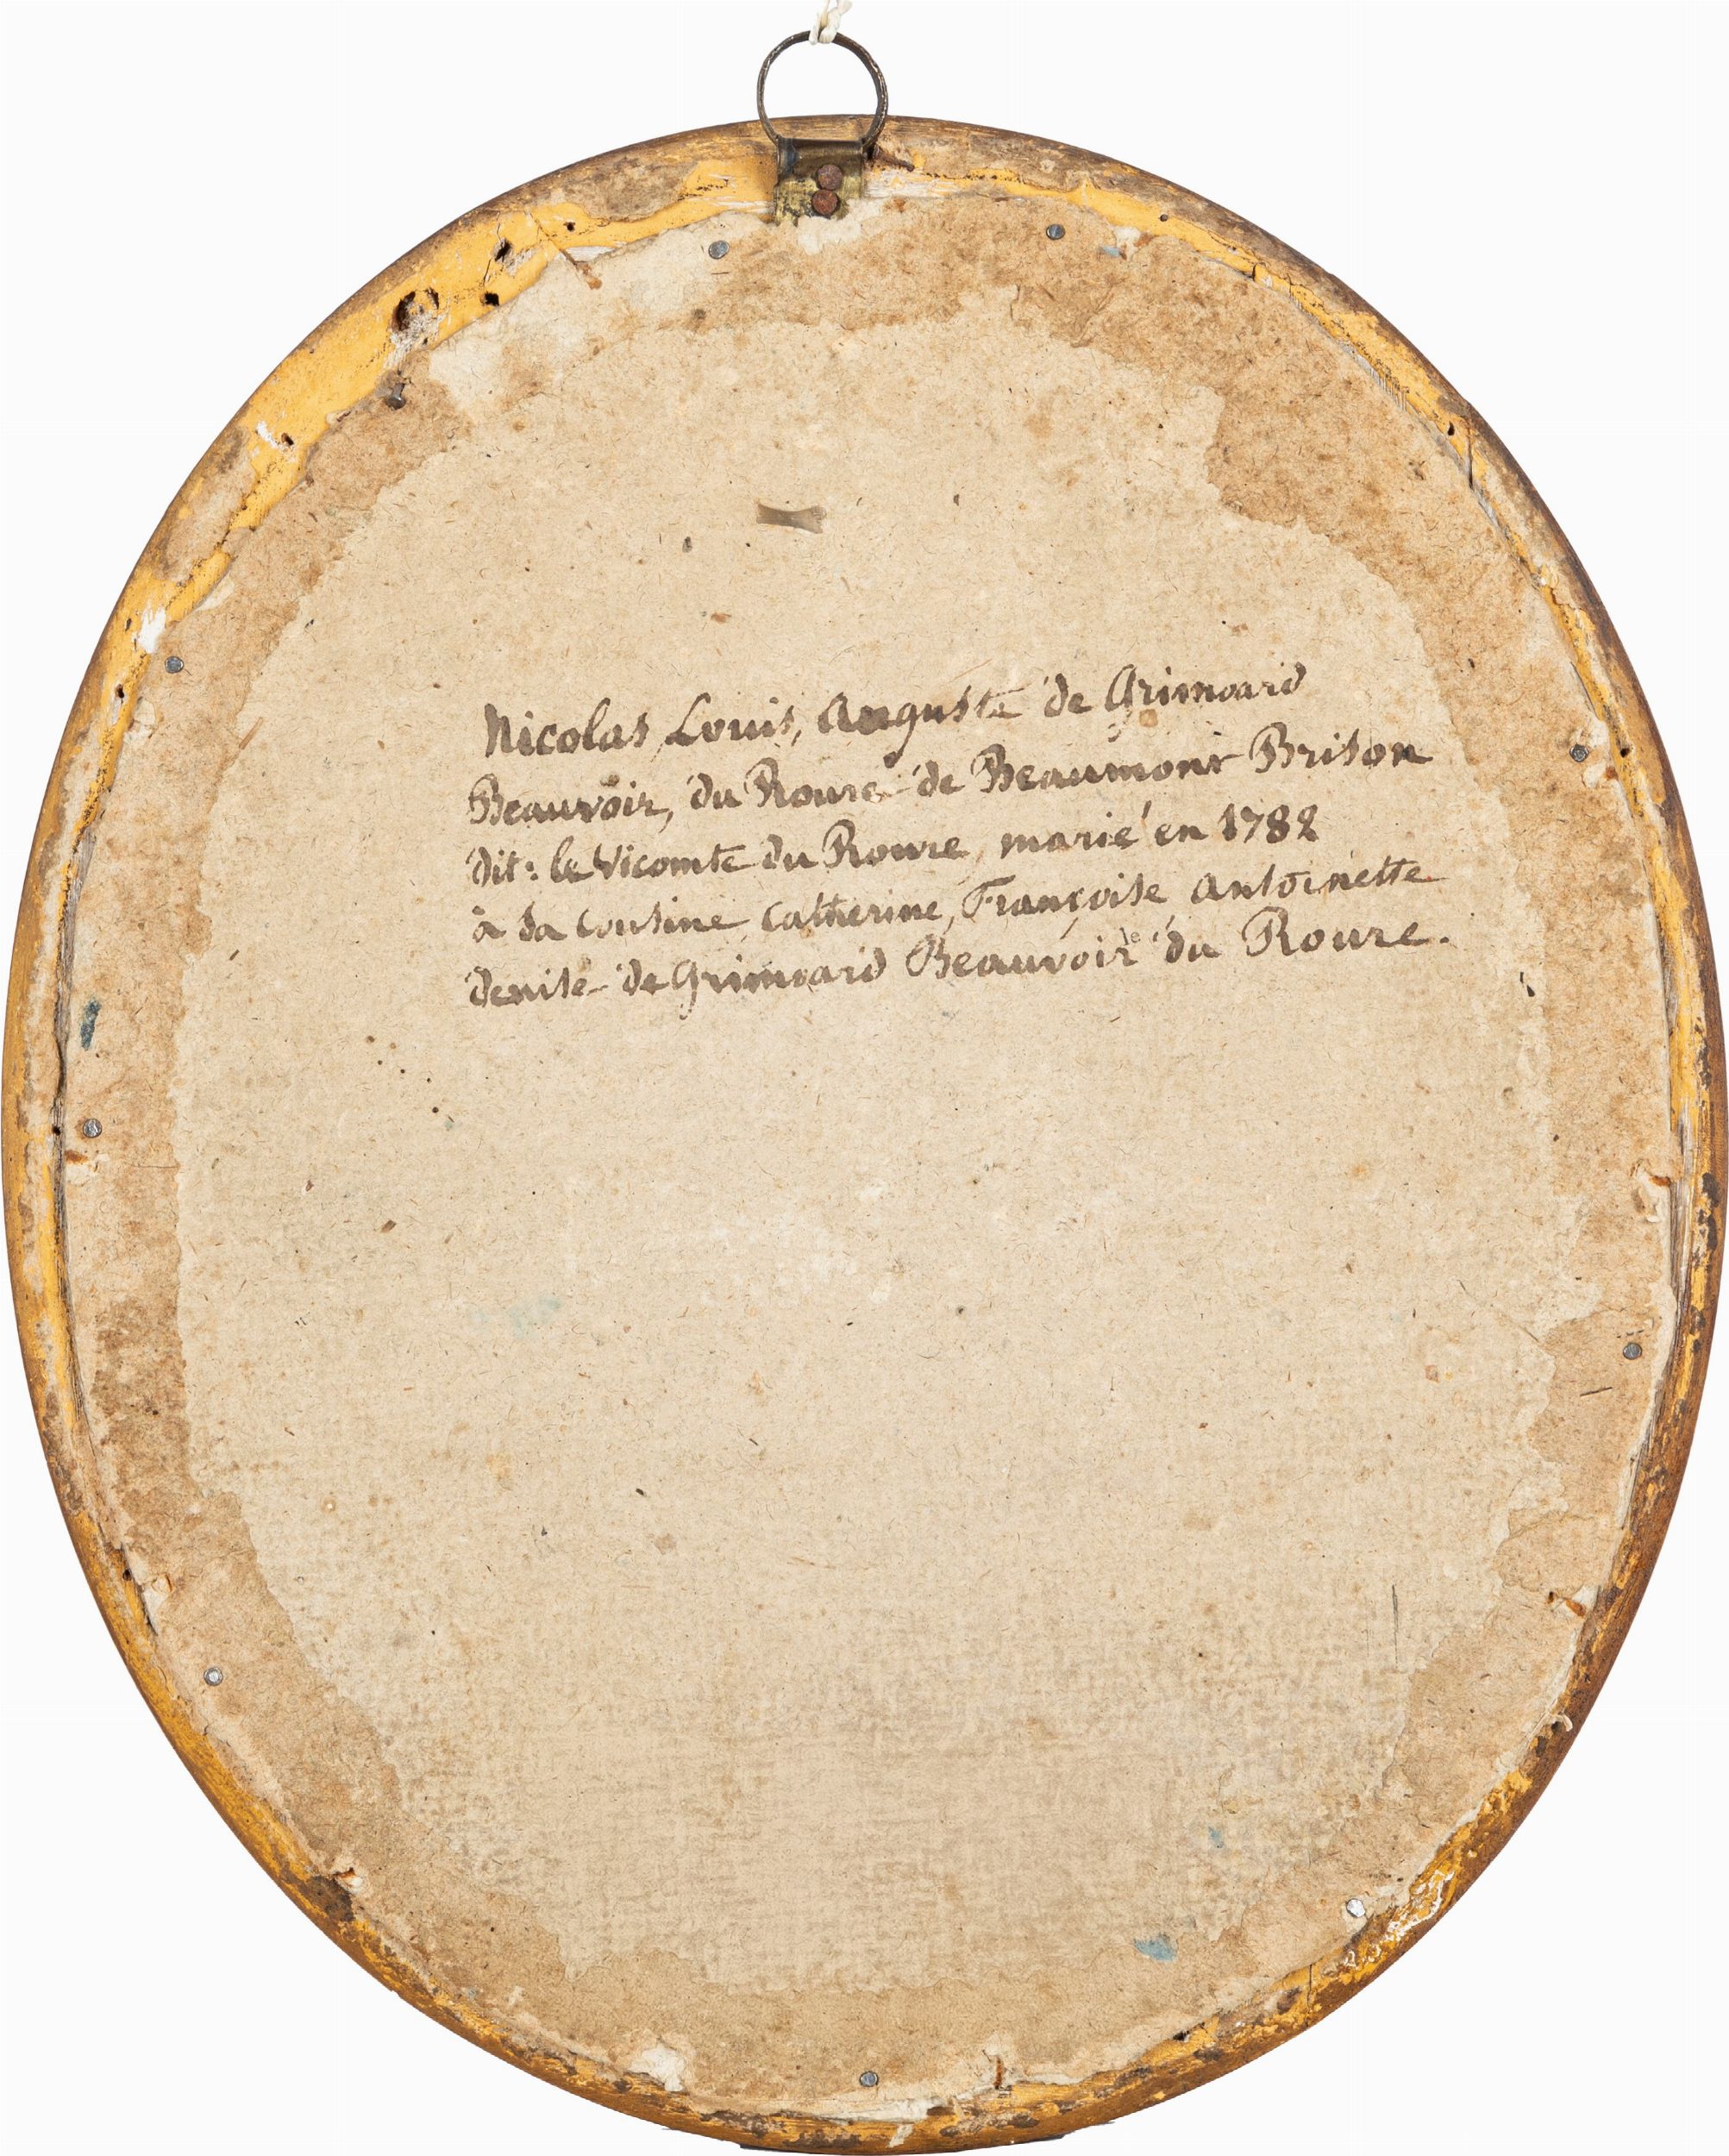 Nicolas, Louis, Auguste de Grimoard
Beauvoir, du Roure de Beaumont Brison
dit: le Vicomte du Roure, marié en 1782
à sa cousine Catherine, Françoise Antoinette
denise de Grimoard Beauvoir du Roure.